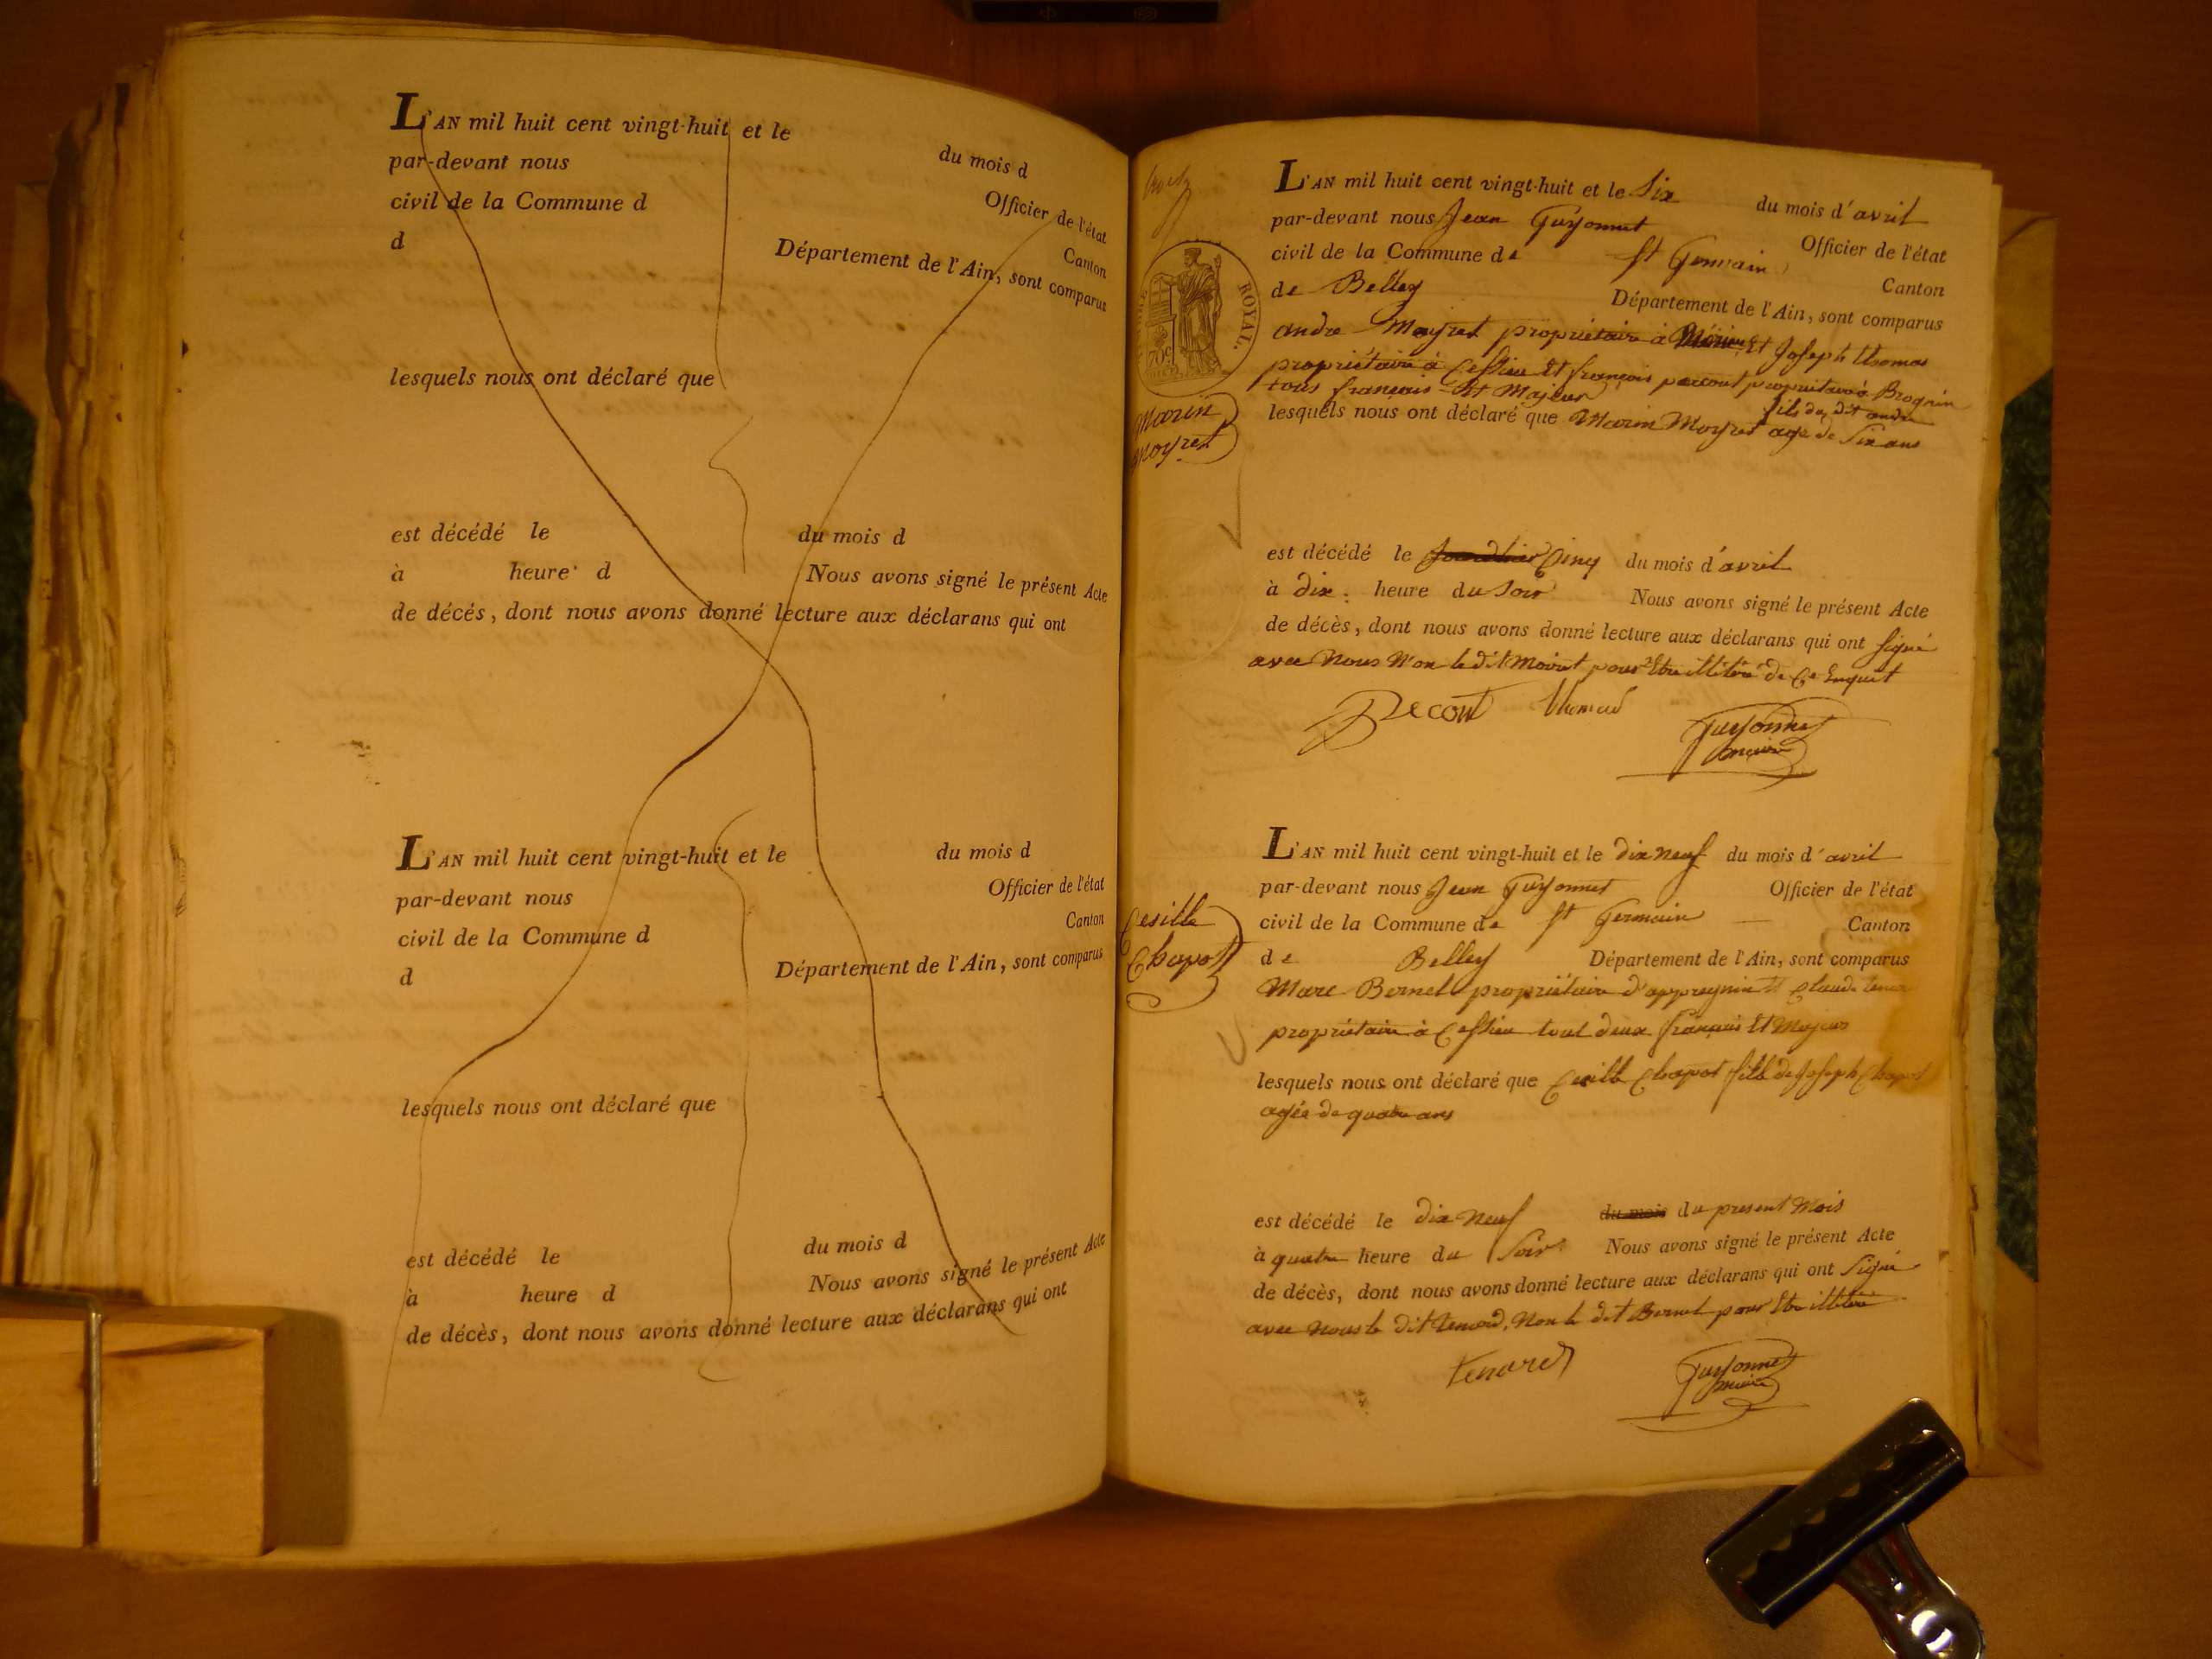 L'AN mil huit cent vingt-huit et le du mois d
par-devant nous Officier de l'état
civil de la Commune d Canton
d Département de l'Ain, sont comparus
lesquels nous ont déclaré que
est décédé le du mois d
à heure d Nous avons signé le présent Acte
de décés, dont nous avons donné lecture aux déclarans qui ont
L'AN mil huit cent vingt-huit et le du mois d
par-devant nous Officier de l'état
civil de la Commune d Canton
d Département de l'Ain, sont comparus
lesquels nous ont déclaré que
est décédé le du mois d
à heure d Nous avons signé le présent Acte
de décès, dont nous avons donné lecture aux déclarans qui ont
ROYAL.
70c
Marin
Moyret
L'AN mil huit cent vingt-huit et le Six du mois d'avril
par-devant nous Jean Guyonnet Officier de l'état
civil de la Commune de St Germain Canton
de Belley Département de l'Ain, sont comparus
andre Moyret propriétaire à Et Joseph thomas
propriétaire à Cessieu Et françois parcout propriétaire à Brognin
tous français Et Majeur
fils du dit andre
lesquels nous ont déclaré que Marin Moyret age de Six ans
est décédé le Cinq du mois d'avril
à dix heure du Soir Nous avons signé le présent Acte
de décès, dont nous avons donné lecture aux déclarans qui ont Signé
avec Nous Non le dit Moiret pour Etre illitéré de Ce Enquit
Thomas
Guyonnet
maire
Cesille
Chapot
L'AN mil huit cent vingt-huit et le dix neuf du mois d'avril
par-devant nous Jean Guyonnet Officier de l'état
civil de la Commune de St Germain Canton
de Belley Département de l'Ain, sont comparus
Marc Bernel propriétaire d'appregnin et Claude
propriétaire à Cessieu tout deux français Et Majeur
lesquels nous ont déclaré que Cesille Chapot fille de Joseph Chapot
agée de quatre ans
est décédé le dix neuf du mois du present Mois
à quatre heure du Soir Nous avons signé le présent Acte
de décès, dont nous avons donné lecture aux déclarans qui ont Signé
avec Nous le dit Tenard, Non le dit Bernel pour Etre illitéré
Tenard
Guyonnet
maire